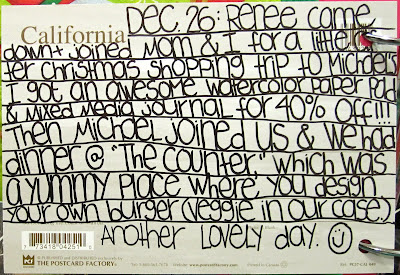 California
DEC. 26: Renee came
down + joined Mom & I for a little
ter Christmas shopping trip to Michael's
I got an awesome watercolor paper pad
& mixed media journal for 40% off!!!
Then Michael joined us & we had
dinner @ "The Counter," which was
a yummy place where you design
your own burger (veggie in our case.)
Another lovely day. ☺
THE POSTCARD FACTORY
www.postcardfactory.com
Printed in Canada